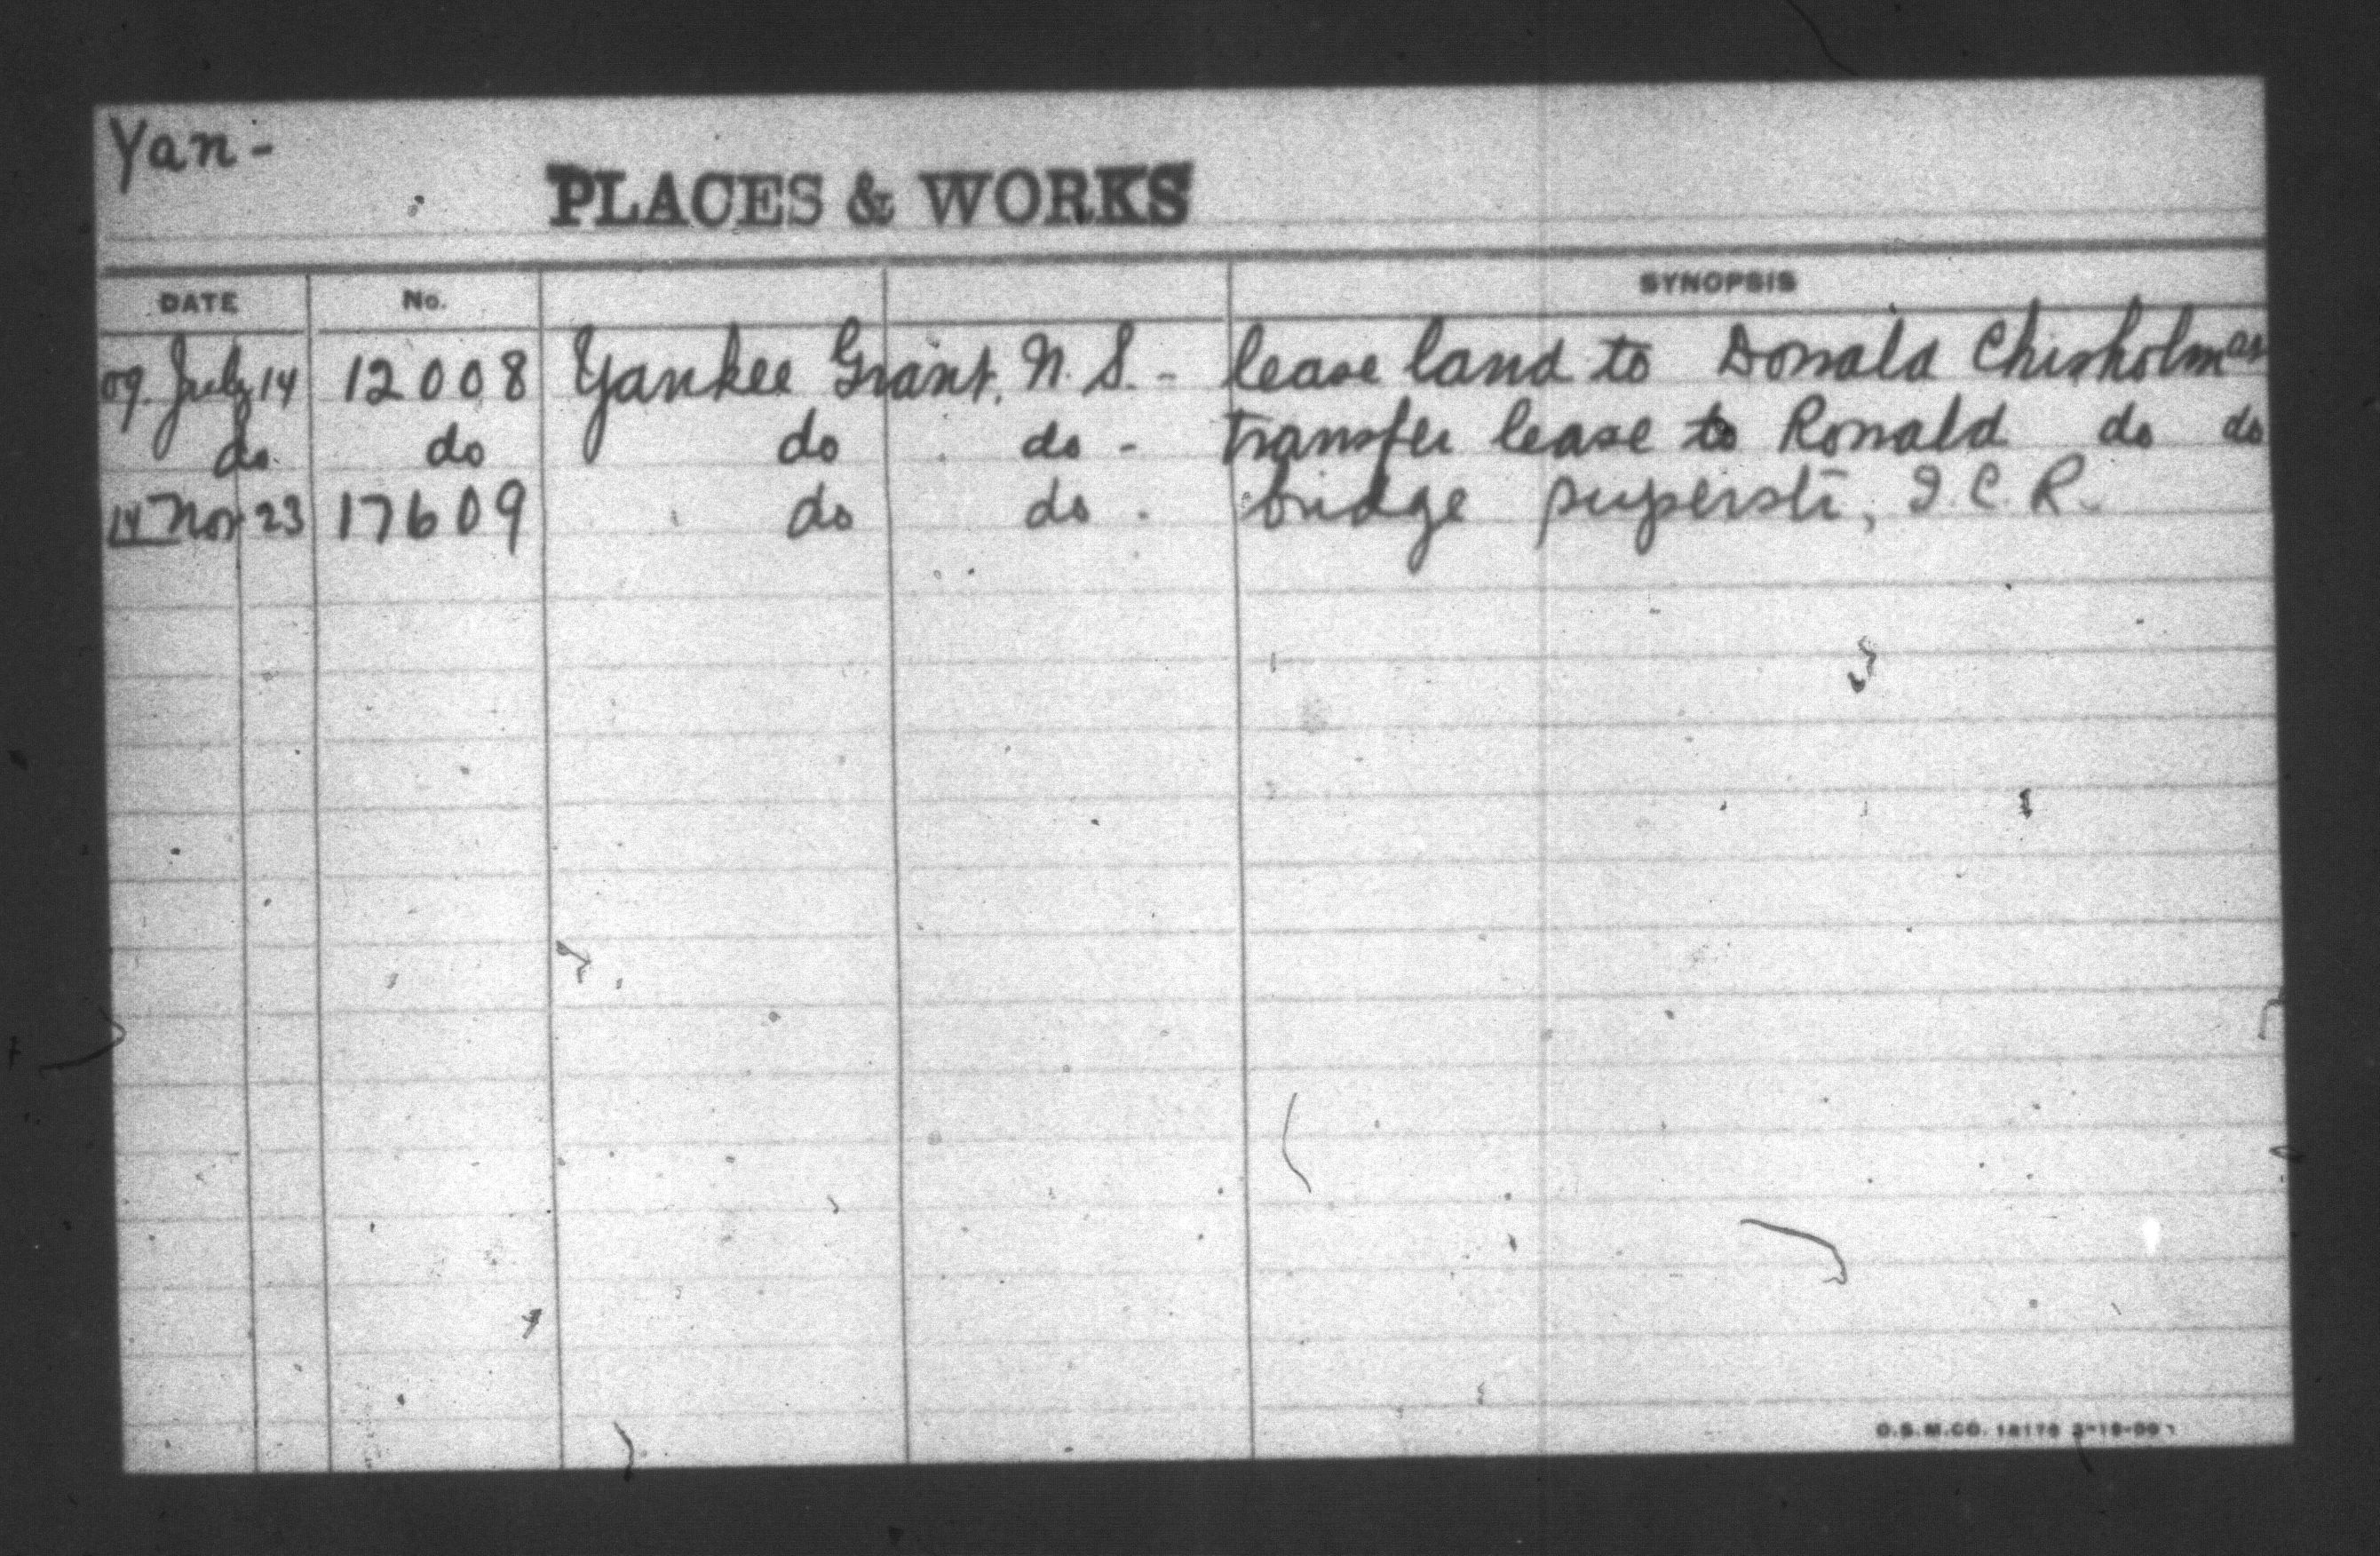 Yan-
PLACES & WORKS
DATE No. SYNOPSIS
09. July 14 12008 Yankee Grant, N. S. - lease land to Donald Chisholm
do do do do - transfer lease to Ronald do do
14 Nov 23 17609 do do - bridge superstr, I. C. R.
O.S.M.CO.